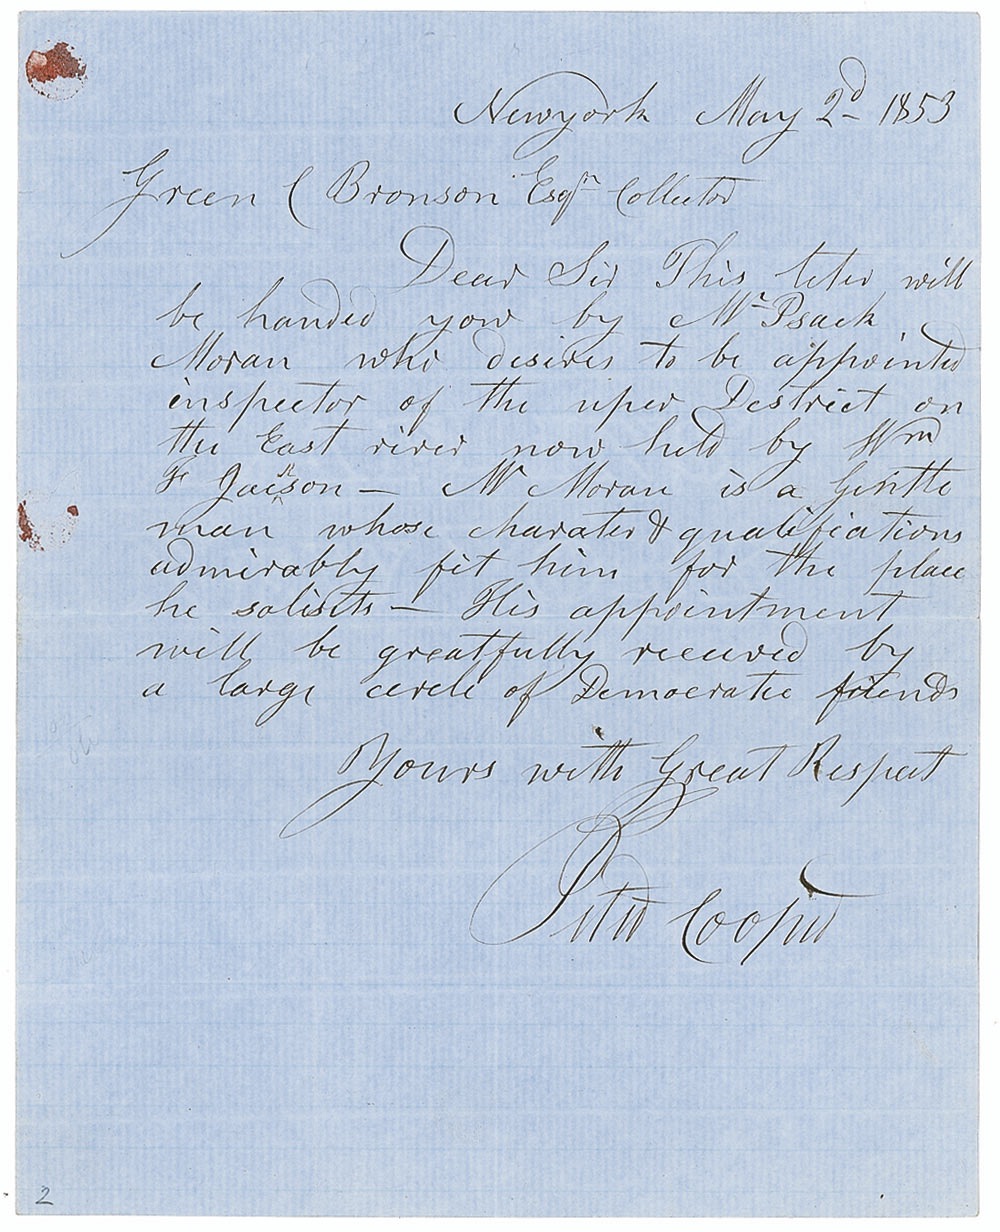 Newyork May 2d 1853
Green C Bronson Esqr Collector
Dear Sir This leter will
be handed yow by Mr Psack
Moran who desires to be appointed
inspector of the uper Destrict on
the East river now held by Wm
F Jackson — Mr Moran is a Gentle
man whose charater & qualifications
admirably fit him for the place
he solisits — His appointment
will be greatfully received by
a large cercle of Democratic friends
Yours with Great Respect
Peter Cooper
2